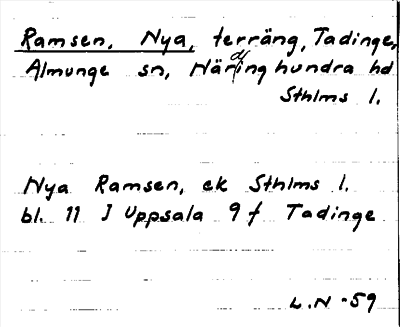 Ramsen, Nya, terräng, Tadinge,
Almunge sn, Närdinghundra hd
Sthlms l.
Nya Ramsen, ek Sthlms l.
bl. 11 I Uppsala 9 f Tadinge
L.N -59